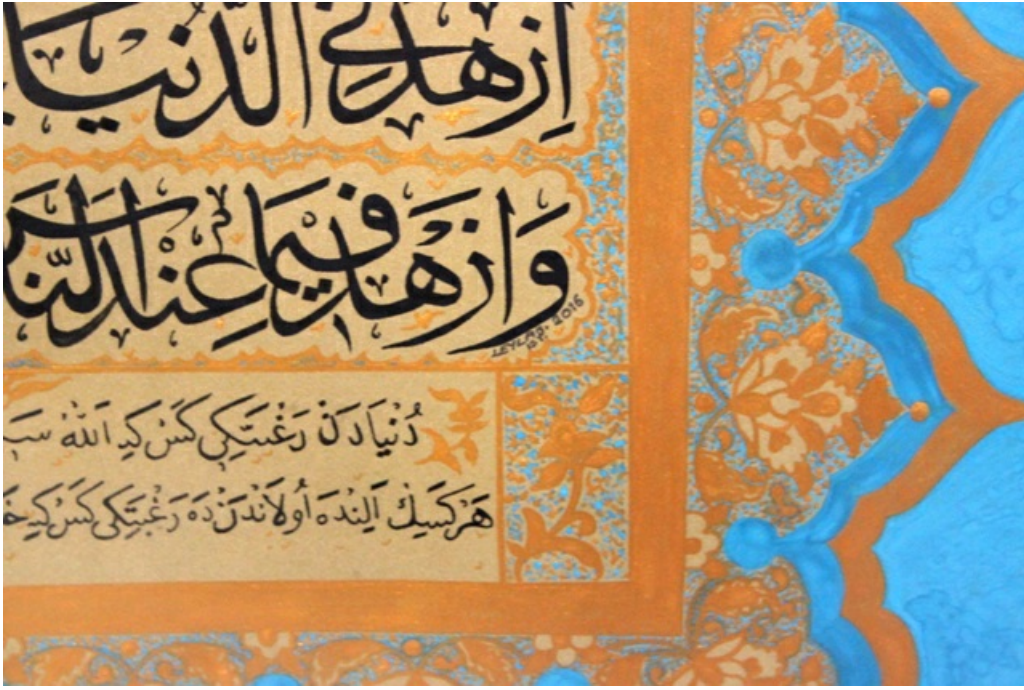 اِزْهَدْ فِي الدُّنْيَا
وَازْهَدْ فِيمَا عِنْدَ النَّاسِ
2016
دُنْيَادَنْ رَغْبَتَكِي كَسْ كِه اللّٰه
هَرْكَسِكْ اَلِنْدَه اُولَانْدَنْ دَه رَغْبَتِكِى كَسْ كِه